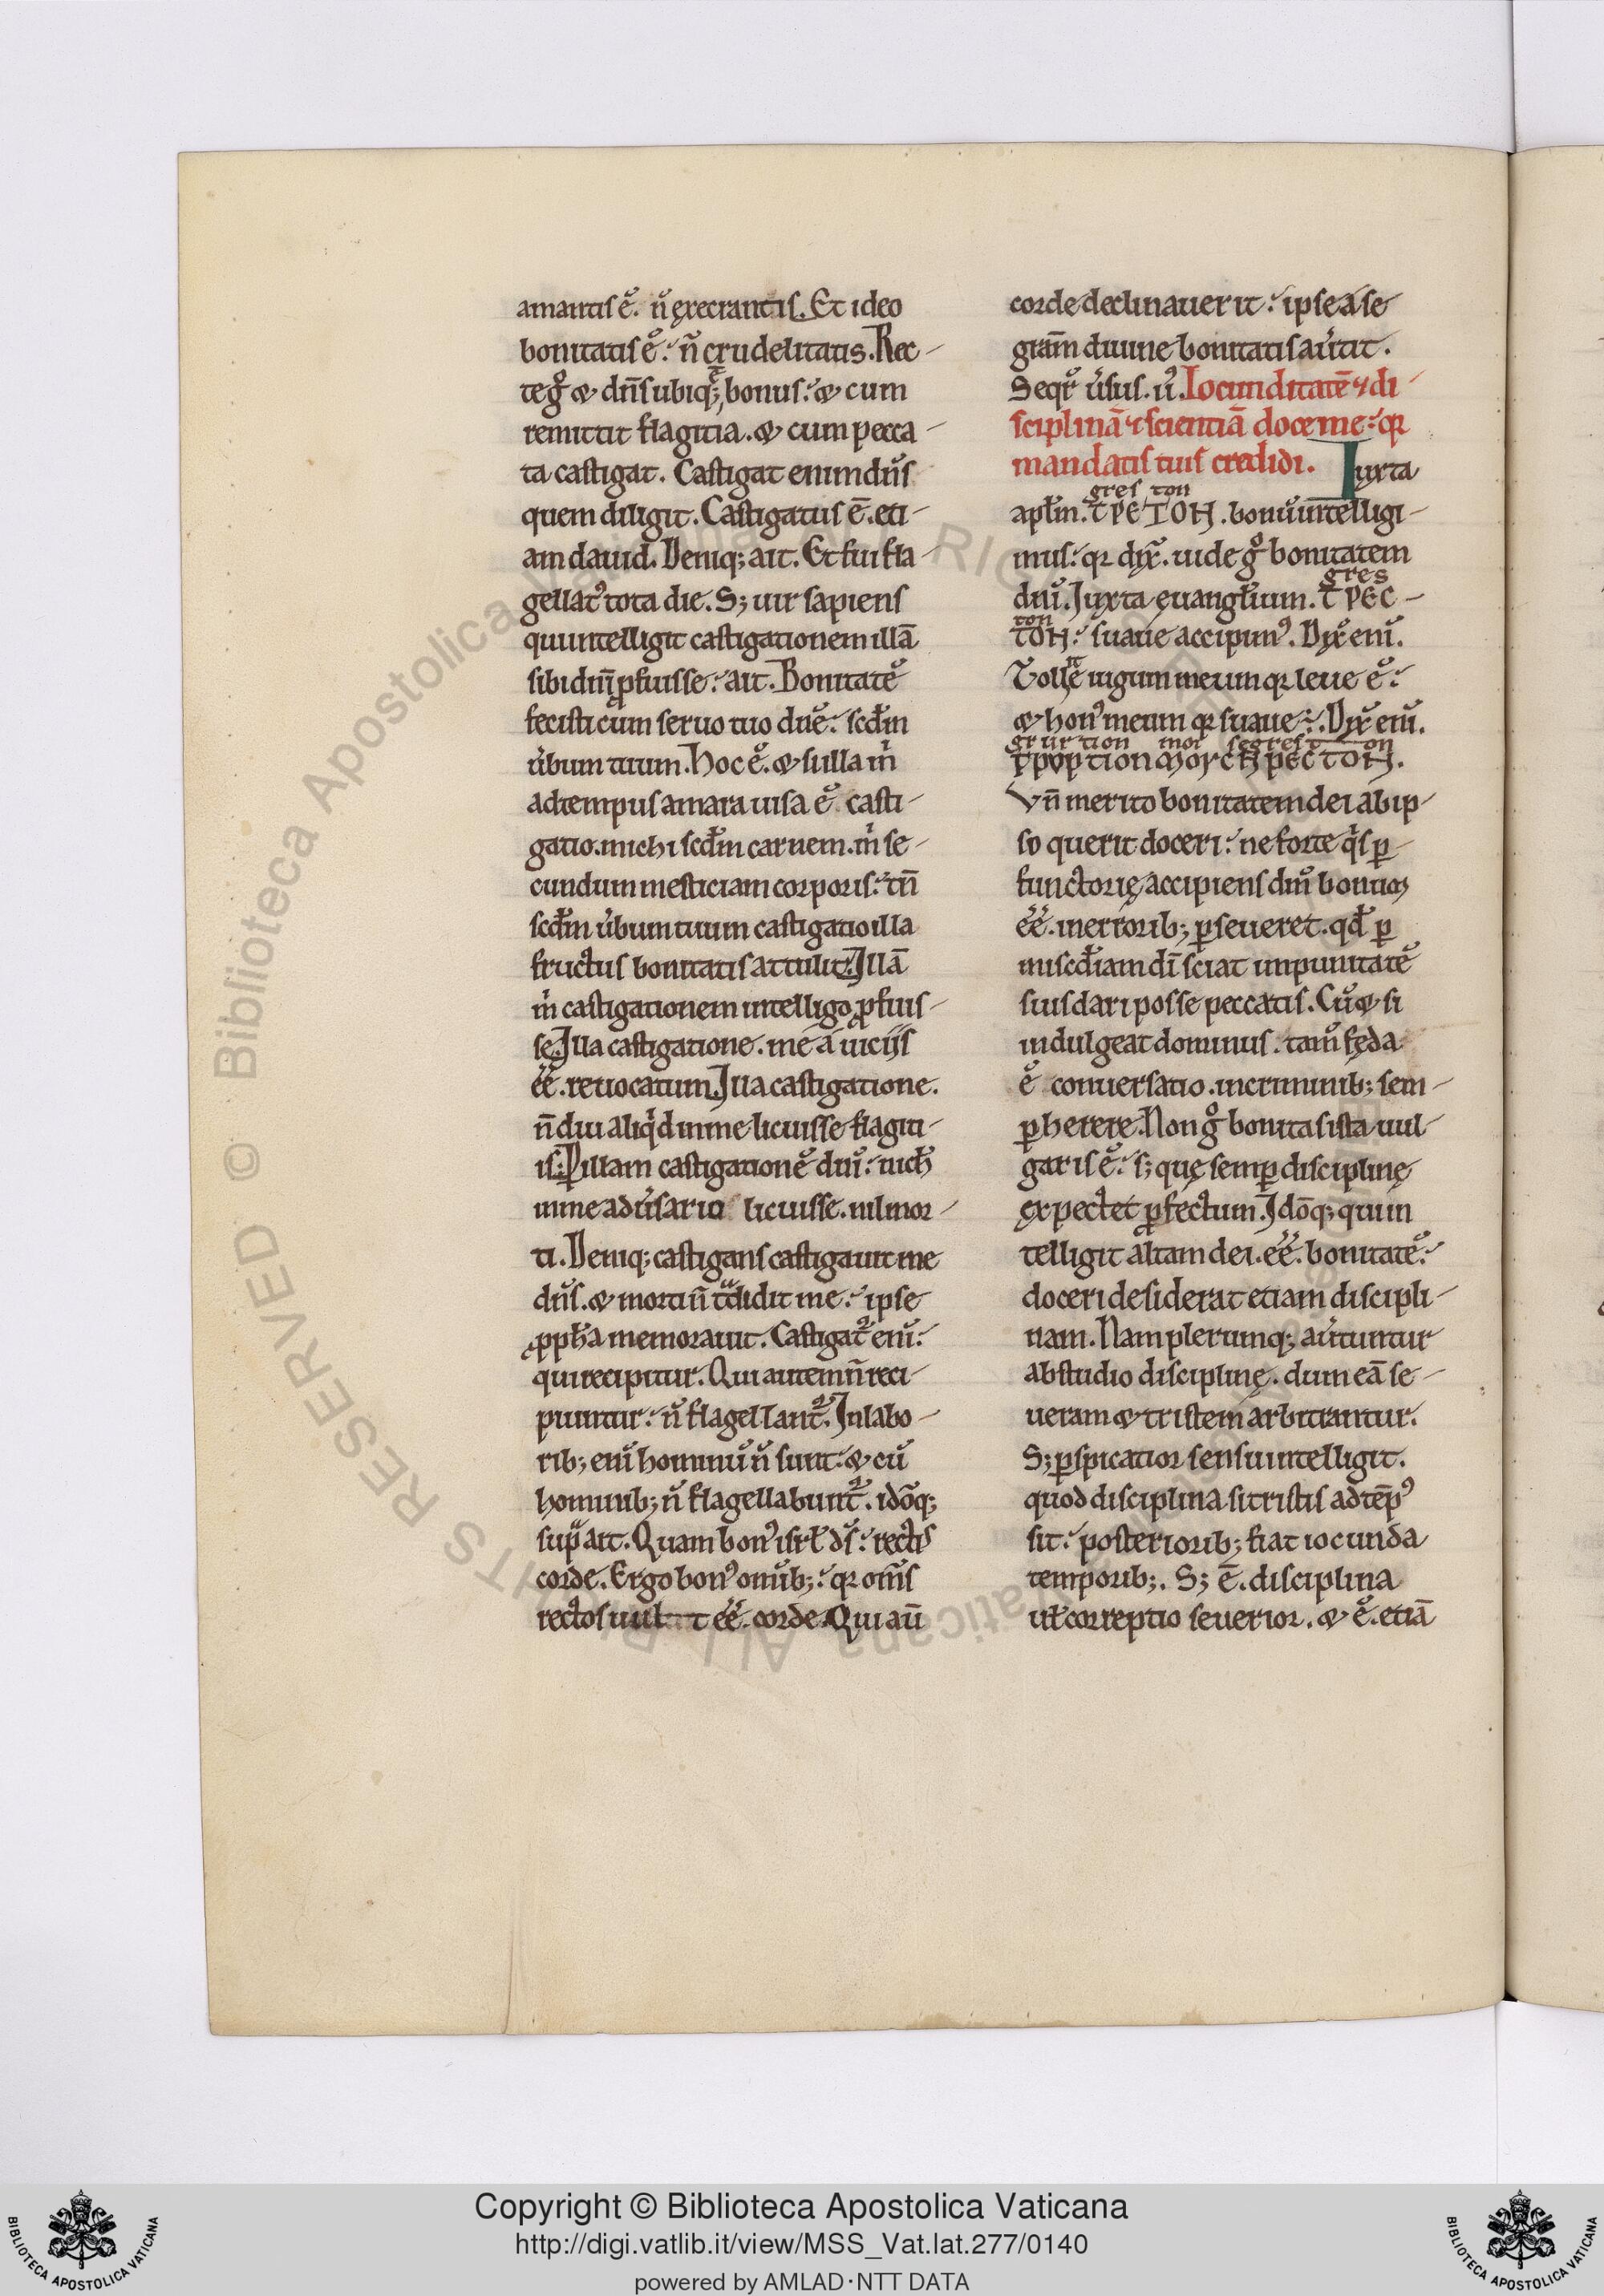 amantis ē. n̄ execrantis. Et ideo
bonitatis ē. n̄ crudelitatis. Rec-
te gͦ & dn̄s ubiq; ē bonus. & cum
remittit flagitia. & cum pecca-
ta castigat. Castigat enim dn̄s
quem diligit. Castigatus ē. eti-
am dauid. Deniq; ait. Et fui fla-
gellatꝰ tota die. S; uir sapiens
qui intelligit castigationem illā
sibi diuī ꝓfuisse. ait. Bonitatē
fecisti cum seruo tuo dn̄e. scd̄m
ūbum tuum. Hoc ē. & si illa m̍
ad tempus amara uisa ē casti-
gatio. michi scd̄m carnem. m̍ se-
cundum mesticiam corporis. tn̄
scd̄m ūbum tuum castigatio illa
fructus bonitatis attulit. Illā
m̍ castigationem intelligo ꝓfuis-
se. Illa castigatione. me a uiciis
ēē. reuocatum. Illa castigatione.
n̄ diu aliqd̍ in me licuisse flagiti-
is. P̱ illam castigationē dn̄i. nich̄
in me adūsario licuisse. nil mor-
ti. Deniq; castigans castigauit me
dn̄s. & morti n̄ tͣdidit me. ipse
ꝓph̄a memorauit. Castigat᷑ enī.
qui recipitur. Qui autem n̄ reci-
piuntur. n̄ flagellant᷑. In labo-
rib; enī hominū n̄ sunt. & cū
hominib; n̄ flagellabunt᷑. idōq;
supͣ ait. Quam bonꝰ isrl̄ ds̄. rectis
corde. Ergo bonꝰ omīb;. qr om̄s
rectos uult ēē. corde. Qui aū
corde declinauerit. ipse a se
gram̄ diuine bonitatis aūtit.
Seqt᷑ ūsus. u̍. Iocunditatē & di-
sciplinā & scientiā doce me. qr
mandatis tuis credidi. Iuxta
gres ton
apl̄m. bonū intelligi-
mus. qr dix̄. uide gͦ bonitatem
gres
dn̄i. Iuxta euangl̄ium.
ton
suaue accipimꝰ. Dix̄ enī.
Tollite iugum meum qr leue ē.
& honꝰ meum qr suaue. Dix̄ enī.
Vn̄ merito bonitatem dei ab ip-
so querit doceri. ne forte qͥs ꝑ-
functorię accipiens dn̄i boni
ēē. in errorib; ꝑseueret. qd̄ ꝑ
misc̄diam dī sciat impunitatē
suis dari posse peccatis. Cū & si
indulgeat dominus. tam̄ feda
ē conuersatio. in criminib; sem-
ꝑ herere. Non gͦ bonitas ista uul-
garis ē. s; que semꝑ discipline
expectet ꝓfectum. Idōq; qui in
telligit altam dei. ēē. bonitatē.
doceri desiderat etiam discipli-
nam. Nam plerumq; aūtuntur
ab studio discipline. dum eā se-
ueram & tristem arbitrantur.
S; ꝑspicatior sensu intelligit.
quod disciplina si tristis ad tēpꝰ
sit. posteriorib; fiat iocunda
temporib;. S; ē. disciplina
ut̄ correptio seuerior. & ē. etiā
Copyright © Biblioteca Apostolica Vaticana
http://digi.vatlib.it/view/MSS_Vat.lat.277/0140
powered by AMLAD·NTT DATA
BIBLIOTECA APOSTOLICA VATICANA
BIBLIOTECA APOSTOLICA VATICANA